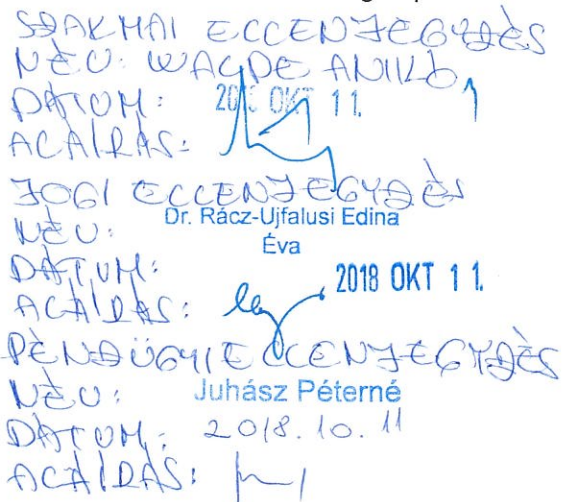 SZAKMAI ELLENJEGYZÉS
NÉV: WAGDE ANIKÓ
DÁTUM: 2018 OKT 11.
ALÁÍRÁS:
JOGI ELLENJEGYZÉS
NÉV: Dr. Rácz-Ujfalusi Edina
Éva
DÁTUM: 2018 OKT 11.
ALÁÍRÁS:
PÉNZÜGYI ELLENJEGYZÉS
NÉV: Juhász Péterné
DÁTUM: 2018.10.11
ALÁÍRÁS: